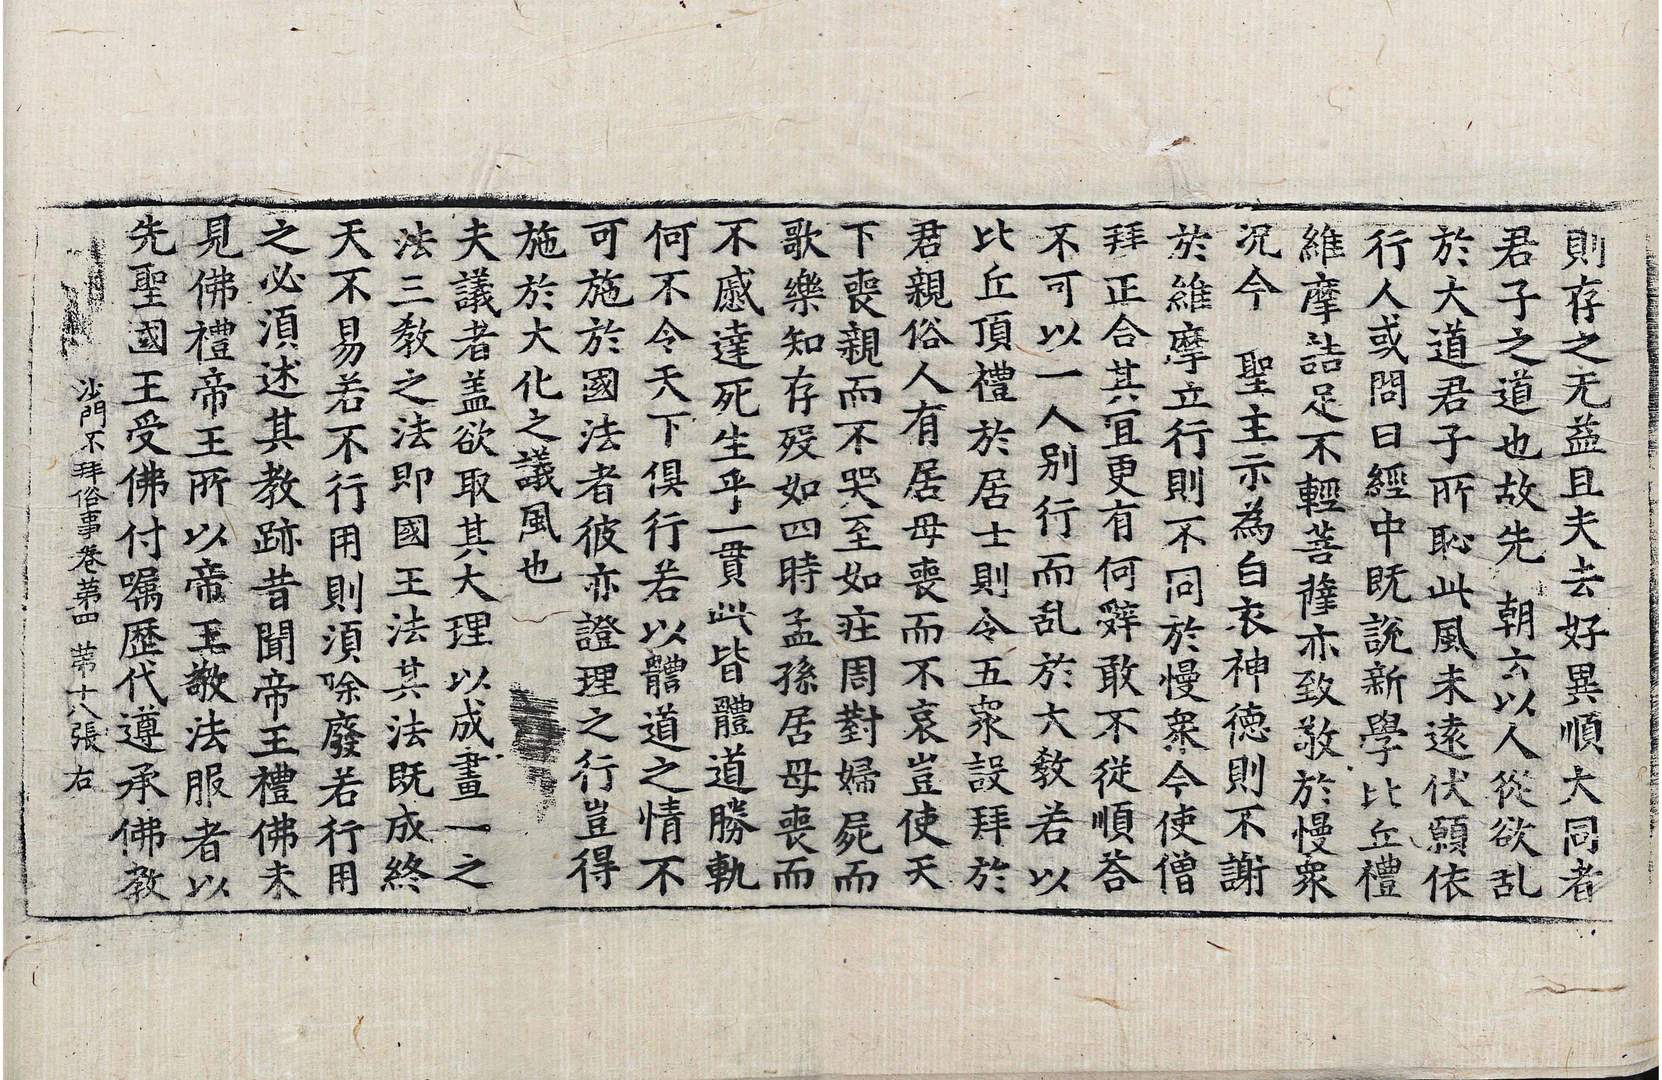 則存之无益且夫去好異順大同者
君子之道也故先　朝六以人從欲乱
於大道君子所恥此風未遠伏願依
行人或問曰經中既說新學比丘禮
維摩詰足不輕菩薩亦致敬於慢衆
况今　聖主示為白衣神德則不謝
於維摩立行則不同於慢衆今使僧
拜正合其宜更有何辤敢不從順荅
不可以一人别行而乱於大教若以
比丘頂禮於居士則令五衆設拜於
君親俗人有居母喪而不哀豈使天
下喪親而不哭至如庄周對婦屍而
歌樂知存歿如四時孟孫居母喪而
不慼達死生乎一貫此皆體道勝軌
何不令天下俱行若以體道之情不
可施於國法者彼亦證理之行豈得
施於大化之議風也
夫議者盖欲取其大理以成畫一之
法三教之法即國王法其法既成終
天不易若不行用則須除廢若行用
之必須述其教跡昔聞帝王禮佛未
見佛禮帝王所以帝王敬法服者以
先聖國王受佛付嘱歷代遵承佛教
沙門不拜俗事卷第四　第十八張　右